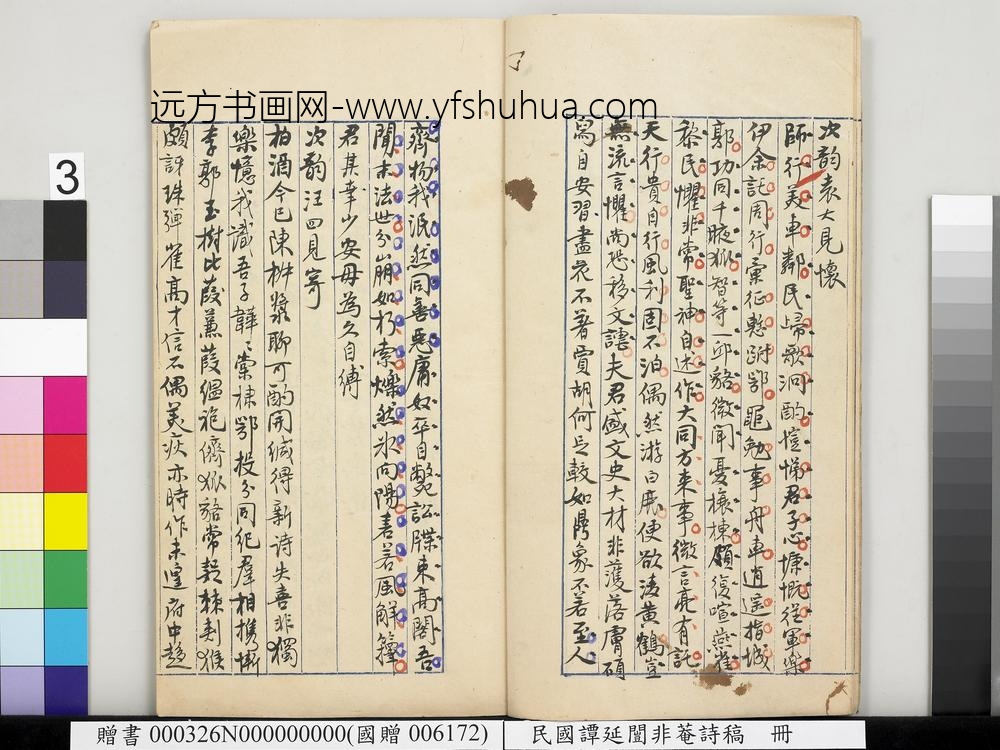 远方书画网-www.yfshuhua.com
次韵袁大見懷
師行美車鄰民歸歌泂酌愷悌君子心慷慨從軍樂
伊余託周行彙征慙跗鄂黽勉事舟車逍遥指城
郭功同千腋狐智等一邱貉微聞憂榱棟頗復喧燕雀
黎民懼非常聖神自述作大同方来事微言亮有託
天行貴自行風利固不泊偶然游白鹿使欲凌黄鶴豈
無流言懼尚恐移文謔夫君盛文史大材非濩落膚碩
寫自安習畫虎不著賁胡何足較如鼎象不若至人
齊物我泯然同善惡庸奴平目斃訟牒東高閣吾
聞末法世分崩如朽索爍然氷向陽害若風解籜
君其幸少安毋為久自縛
次韵汪四見寄
柏酒今已陳椒漿聊可酌開緘得新詩失喜非獨
樂憶我識吾子韡韡棠棣鄂投分同紀羣相携慚
李郭玉樹比葭蒹葭緼袍儕狐貉常報棘刺猴
頗訝珠彈雀高才信不偶美疢亦時作未遑府中趨
3
贈書 000326N000000000(國贈 006172)
民國譚延闓非菴詩稿 冊